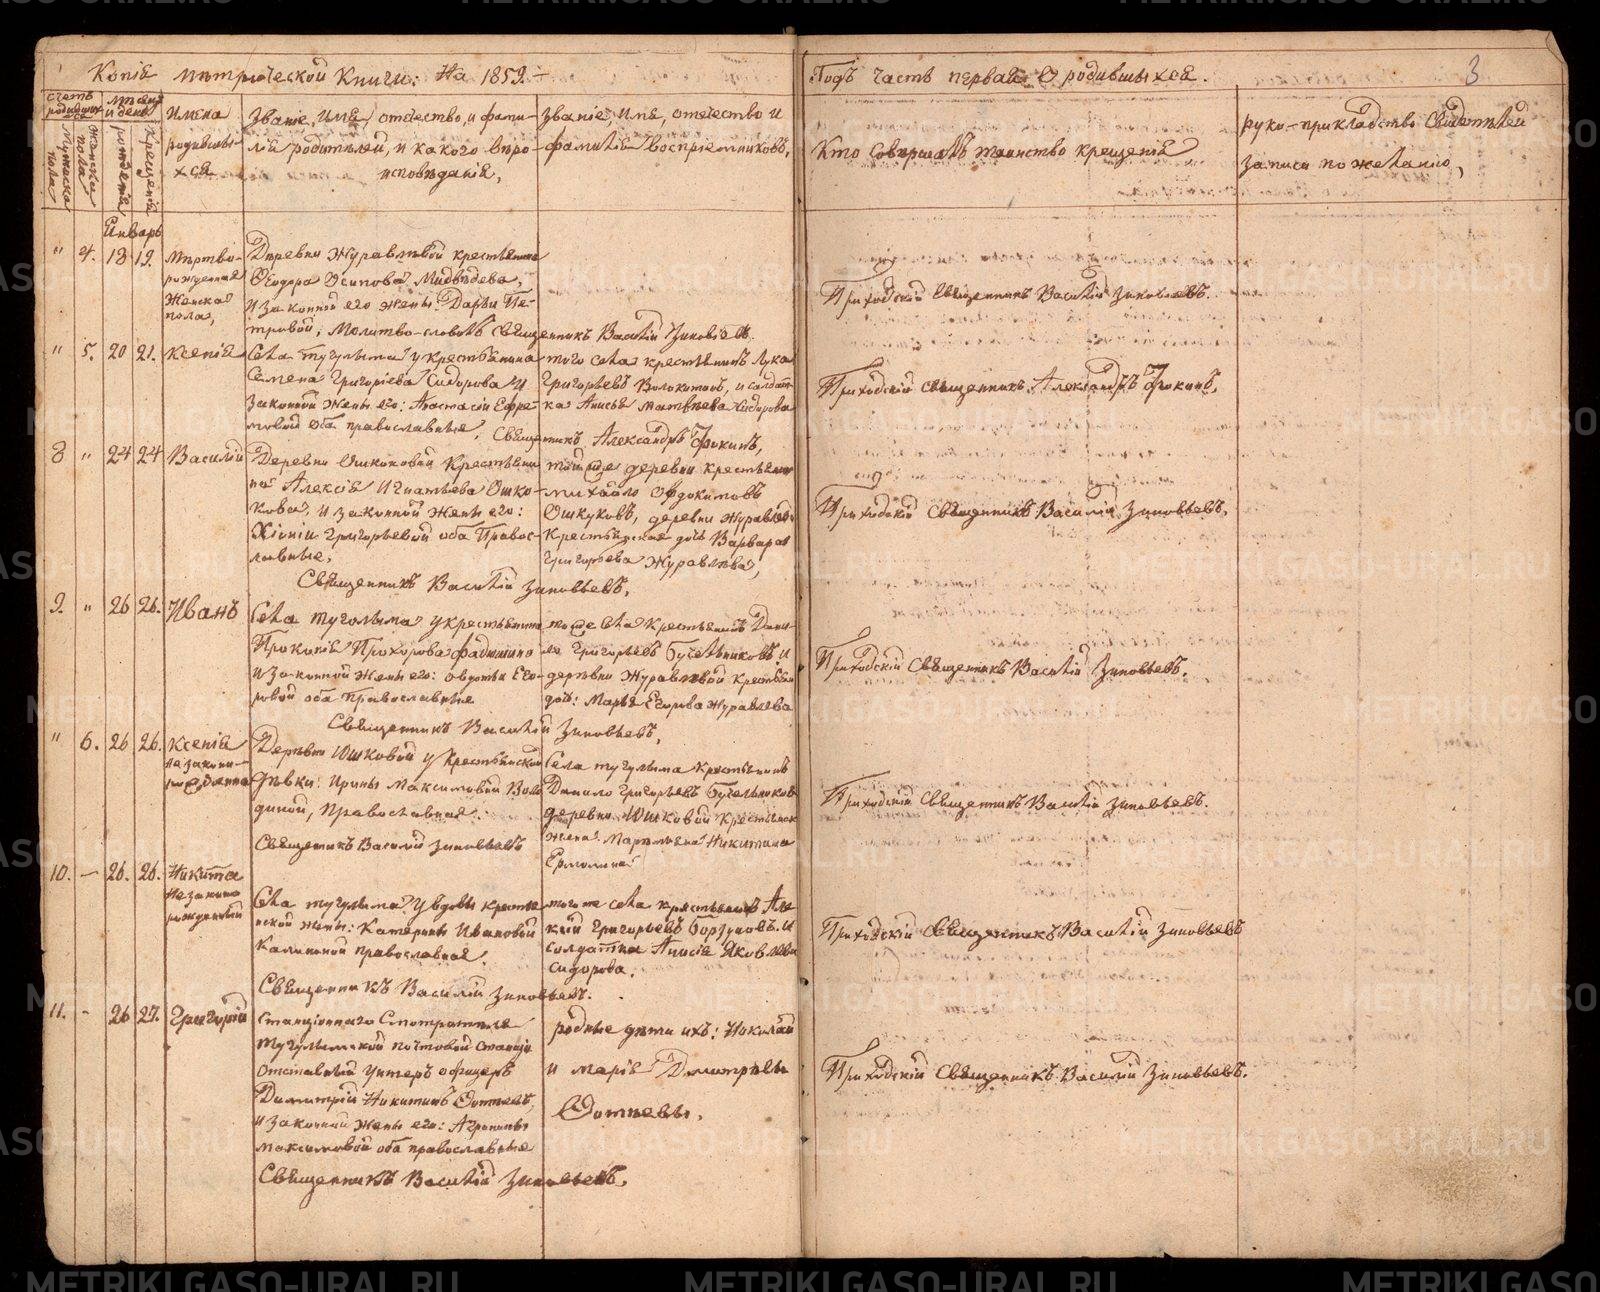 Копія метрической Книги: На 1859
Годъ часть первая О родившихся.
3
счетъ родивших
мѣсяцъ и день
Мужеска пола
женска пола
рожденія
Крещенія
Имена
родивши-
хся
Званіе, Имя, отчество, и фами-
лій родителей, и какого вѣро-
исповѣданія,
Званіе, Имя, отчество и
фамилія Воспріемниковъ,
Кто совершалъ таинство крещенія
руко-прикладство свидетелей
записи по желанію,
Январь
" 4. 18 19.
Мертво-
рожденная
Женска
пола,
Деревни Журавлевой крестьянина
Ѳеодора Осипова Медведева,
и законной его жены: Дарьи Пе-
тровой, Молитво-словилъ Священникъ Василій Зиновьевъ.
Приходскій Священникъ Василій Зиновьевъ.
" 5. 20 21. Ксенія
Села тугулыма у крестьянина
Семена Григоріева Сидорова и
Законной жены его: Анастасіи Ефре-
мовой оба православные,
того села крестьянинъ Лука
Григорьевъ Волокитинъ, и салдат-
ка Анисья Матвѣева Сидорова
Священникъ Александръ Фокинъ,
Приходскій священникъ Александръ Фокинъ,
8 " 24 24 Василій
Деревни Ошкуковой Крестьяни
на Алексія Игнатьева Ошко-
кова, и законной жены его:
Хіоніи Григорьевой оба Правос-
лавные,
той же деревни крестьянин
михайло Офдокимовъ
Ошкуковъ, деревни Журавлев
Крестьянская дочь Варвара
Григорьева Журавлева,
Священникъ Василій Зиновьевъ.
Приходскій Священникъ Василій Зиновьевъ.
9. " 26 26. Иванъ
Села тугулыма у крестьянина
Прокопія Прохорова
и законной жены его: овдотьи Его-
ровой оба Православные
тоже села Крестьянинъ Дани-
ла Григорьевъ Бутельниковъ, и
деревни Журавлевой крестьян
дочь: Марья Егорова Журавлева
Священникъ Василій Зиновьевъ,
Приходскій Священникъ Василій Зиновьевъ.
" 6. 26 26. Ксенія
незаконно-
рожденна
Деревни Юшковой у Крестьянской
дѣвки: Ирины Максимовой Воло
диной, Православная.
Священникъ Василій Зиновьевъ
Села тугулыма Крестьянинъ
Данило Григорьевъ Бутельников
деревни Юшковой Крестьянск
жена Марѳа Никитина
Ермолина
Приходскій Священникъ Василій Зиновьевъ.
10. - 26. 26. Никита
незаконно
рожденный
Села тугулыма У вдовы крестья
нской жены: Катерины Ивановой
Калининой православная.
тогоже села крестьянинъ Але
кѣй Григорьевъ Боргуновъ. и
солдатка Анисія Яковлева
сидорова.
Священникъ Василій Зиновьевъ.
Приходскій Священникъ Василій Зиновьевъ
11. - 26 27. Григорій
Станціоннаго Смотрителя
тугулымской почтовой станціи
отставный Унтеръ офицеръ
Димитрій Никитинъ
и законной жены его: Агрипины
максимовой оба православные
Священникъ Василій Зиновьевъ.
родные дѣти ихъ: Николай
и марія Димитріевы
Приходскій Священникъ Василій Зиновьевъ.
METRIKI.GASO-URAL.RU